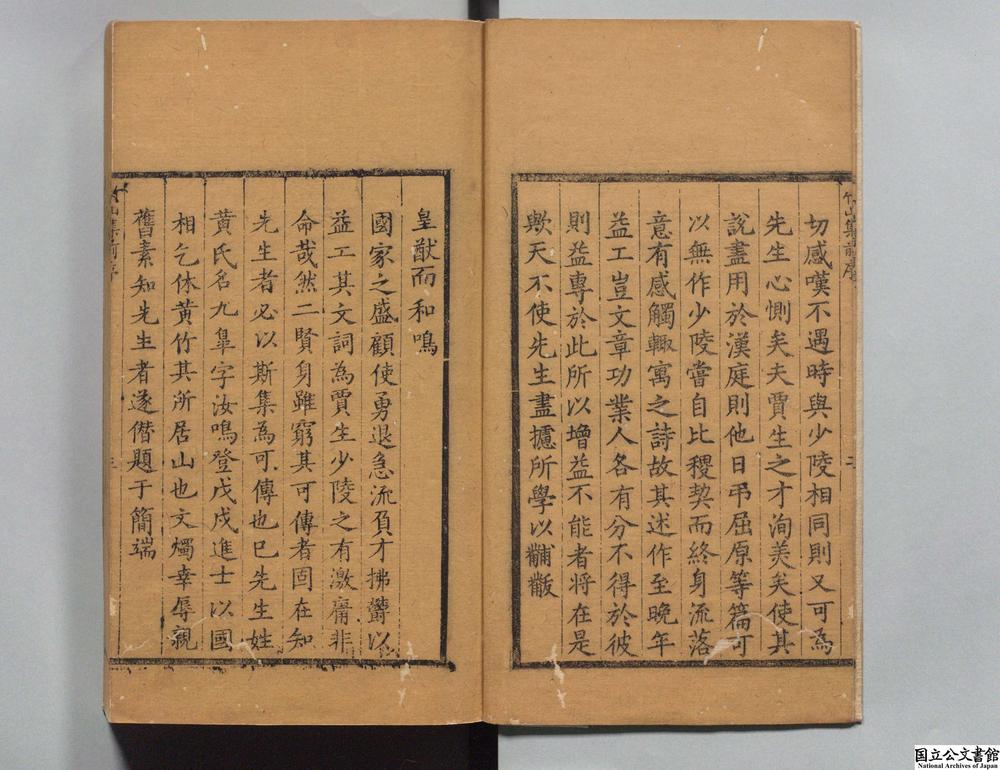 竹山集前序
切感嘆不遇時與少陵相同則又可為
先生心惻矣夫賈生之才洵美矣使其
說盡用於漢庭則他日弔屈原等篇可
以無作少陵嘗自比稷契而終身流落
意有感觸輙寓之詩故其述作至晚年
益工豈文章功業人各有分不得於彼
則益專於此所以增益不能者將在是
歟天不使先生盡攄所學以黼黻
皇猷而和鳴
國家之盛顧使勇退急流負才拂鬱以
益工其文詞為賈生少陵之有激庸非
命哉然二賢身雖窮其可傳者固在知
先生者必以斯集為可傳也巳先生姓
黃氏名九臯字汝鳴登戊戌進士以國
相乞休黃竹其所居山也文燭幸辱親
舊素知先生者遂僭題于簡端
竹山集前序
三
国立公文書館
National Archives of Japan